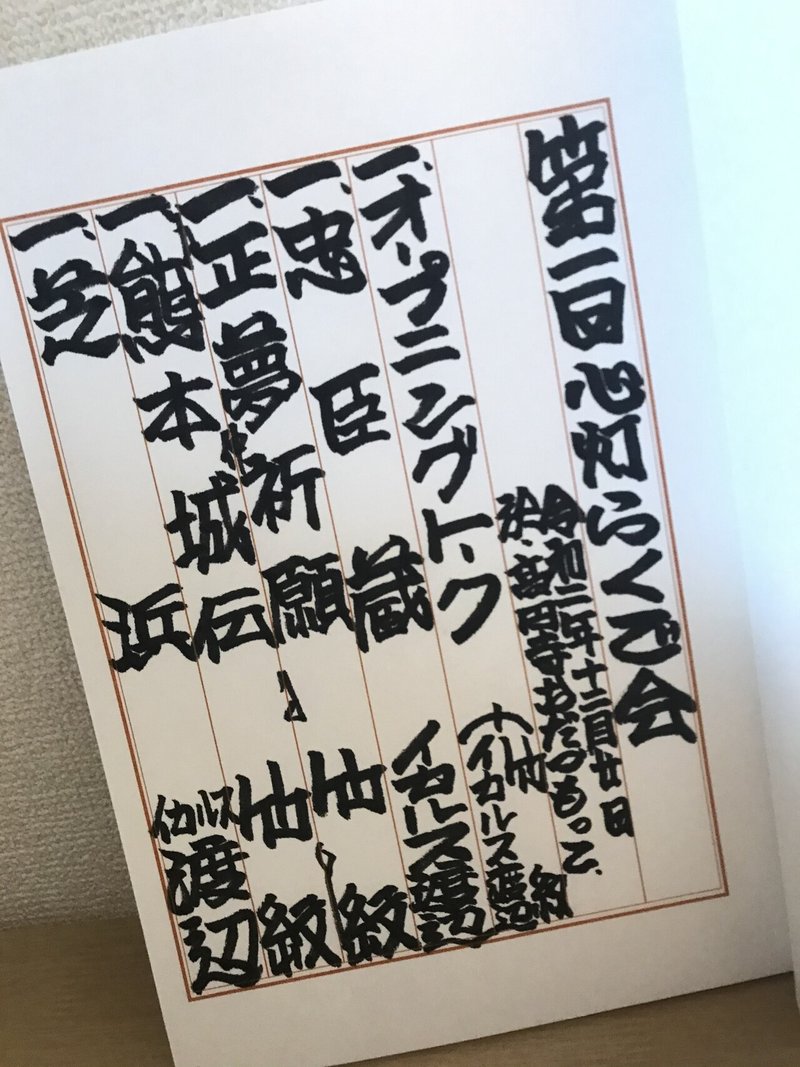 第一回心灯らくご会
令和二年十二月廿日
於、高円寺おだづもっこ
一、オープニングトーク (竹紋 イカルス渡辺)
一、忠臣蔵 イカルス渡辺
一、正夢祈願 竹紋
一、熊本城伝 竹紋
一、芝浜 イカルス渡辺